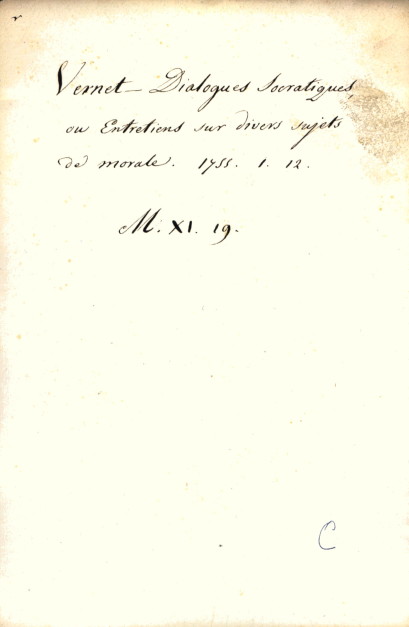 Vernet — Dialogues Socratiques,
ou Entretiens sur divers sujets
de morale. 1755. 1. 12.
M. XI. 19.
C